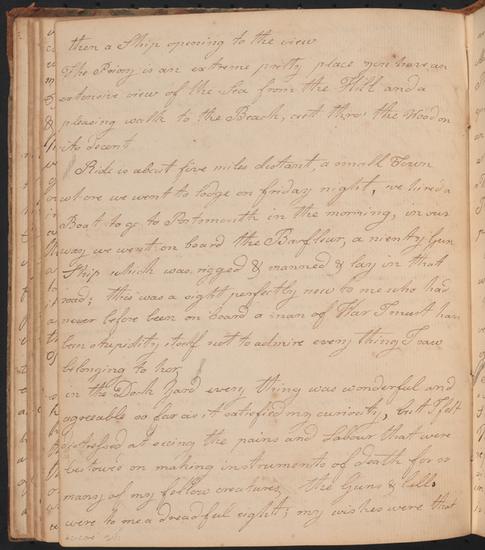 then a Ship opening to the view
The Priory is an extreme pretty place you have an
extensive view of the Sea from the Hill and a
pleasing walk to the Beach, cut thro' the Wood on
its decent
Ride is about five miles distant, a small Town
where we went to lodge on friday night, we hired a
Boat to go to Portsmouth in the morning, in our
way we went on board the Barfleur, a ninety Gun
Ship which was rigged & manned & lay in that
road; this was a sight perfectly new to me who had
never before been on board a man of War I must have
been stupidity itself not to admire every thing I saw
belonging to her
in the Dock Yard every thing was wonderful and
agreeable so far as it satisfied my curiosity, but I felt
distressed at seeing the pains and labour that were
bestowed on making instruments of death for so
many of my fellow creatures the Guns &
were to me a dreadful sight; my wishes were that